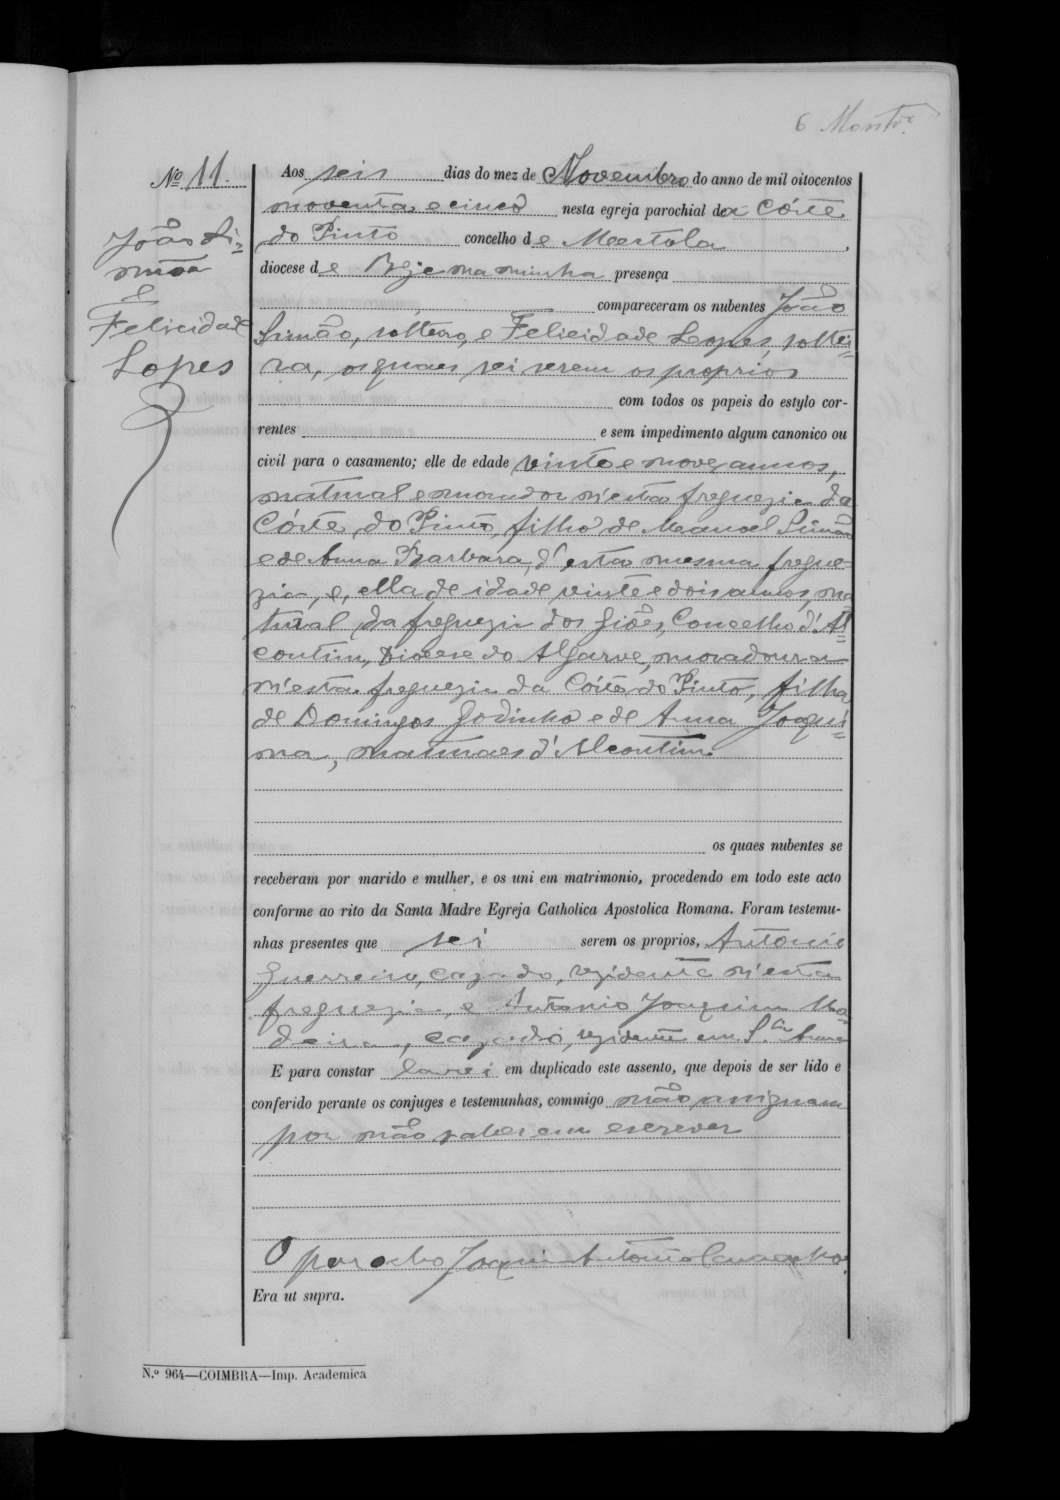 6 Montr.º
Nº 11.
João Si=
mão
e
Felicidade
Lopes
Aos seis dias do mez de Novembro do anno de mil oitocentos
noventa e cinco nesta egreja parochial da Côrte
do Pinto concelho de Mertola,
diocese de Beje na minha presença
compareceram os nubentes João
Simão, solteiro, e Felicidade Lopes, soltei=
ra, os quaes sei serem os proprios
com todos os papeis do estylo cor-
rentes e sem impedimento algum canonico ou
civil para o casamento; elle de edade vinte e nove annos,
natural e morador n'esta freguezia da
Côrte do Pinto, filho de Manoel Simão
e de Anna Barbara, d'esta mesma fregue=
zia, e, ella de idade vinte e dois annos, na
tural da freguezia dos Giões, Concelho d'Al=
coutim, Diocese do Algarve, moradoura
n'esta freguezia da Côrte do Pinto, filha
de Domingos Godinho e de Anna Joaqui=
na, naturaes d'Alcoutim.
os quaes nubentes se
receberam por marido e mulher, e os uni em matrimonio, procedendo em todo este acto
conforme ao rito da Santa Madre Egreja Catholica Apostolica Romana. Foram testemu-
nhas presentes que sei serem os proprios, Antonio
Guerreiro, cazado, rezidente n'esta
freguezia, e Antonio Joaquim Ma=
deira, cazado, rezidente em S.ta Anna
E para constar lavrei em duplicado este assento, que depois de ser lido e
conferido perante os conjuges e testemunhas, commigo não assignam
por não saberem escrever
O parocho Joaquim Antonio
Era ut supra.
N.º 964—COIMBRA—Imp. Academica